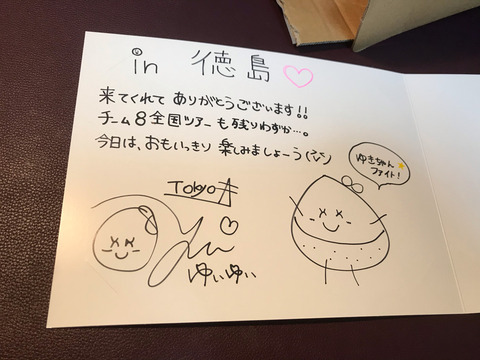 in 徳島♡
来てくれて ありがとうございます!!
チーム8全国ツアーも残りわずか…。
今日は、おもいっきり 楽しみましょーう
ゆきちゃん
ファイト!
Tokyo
ゆいゆい